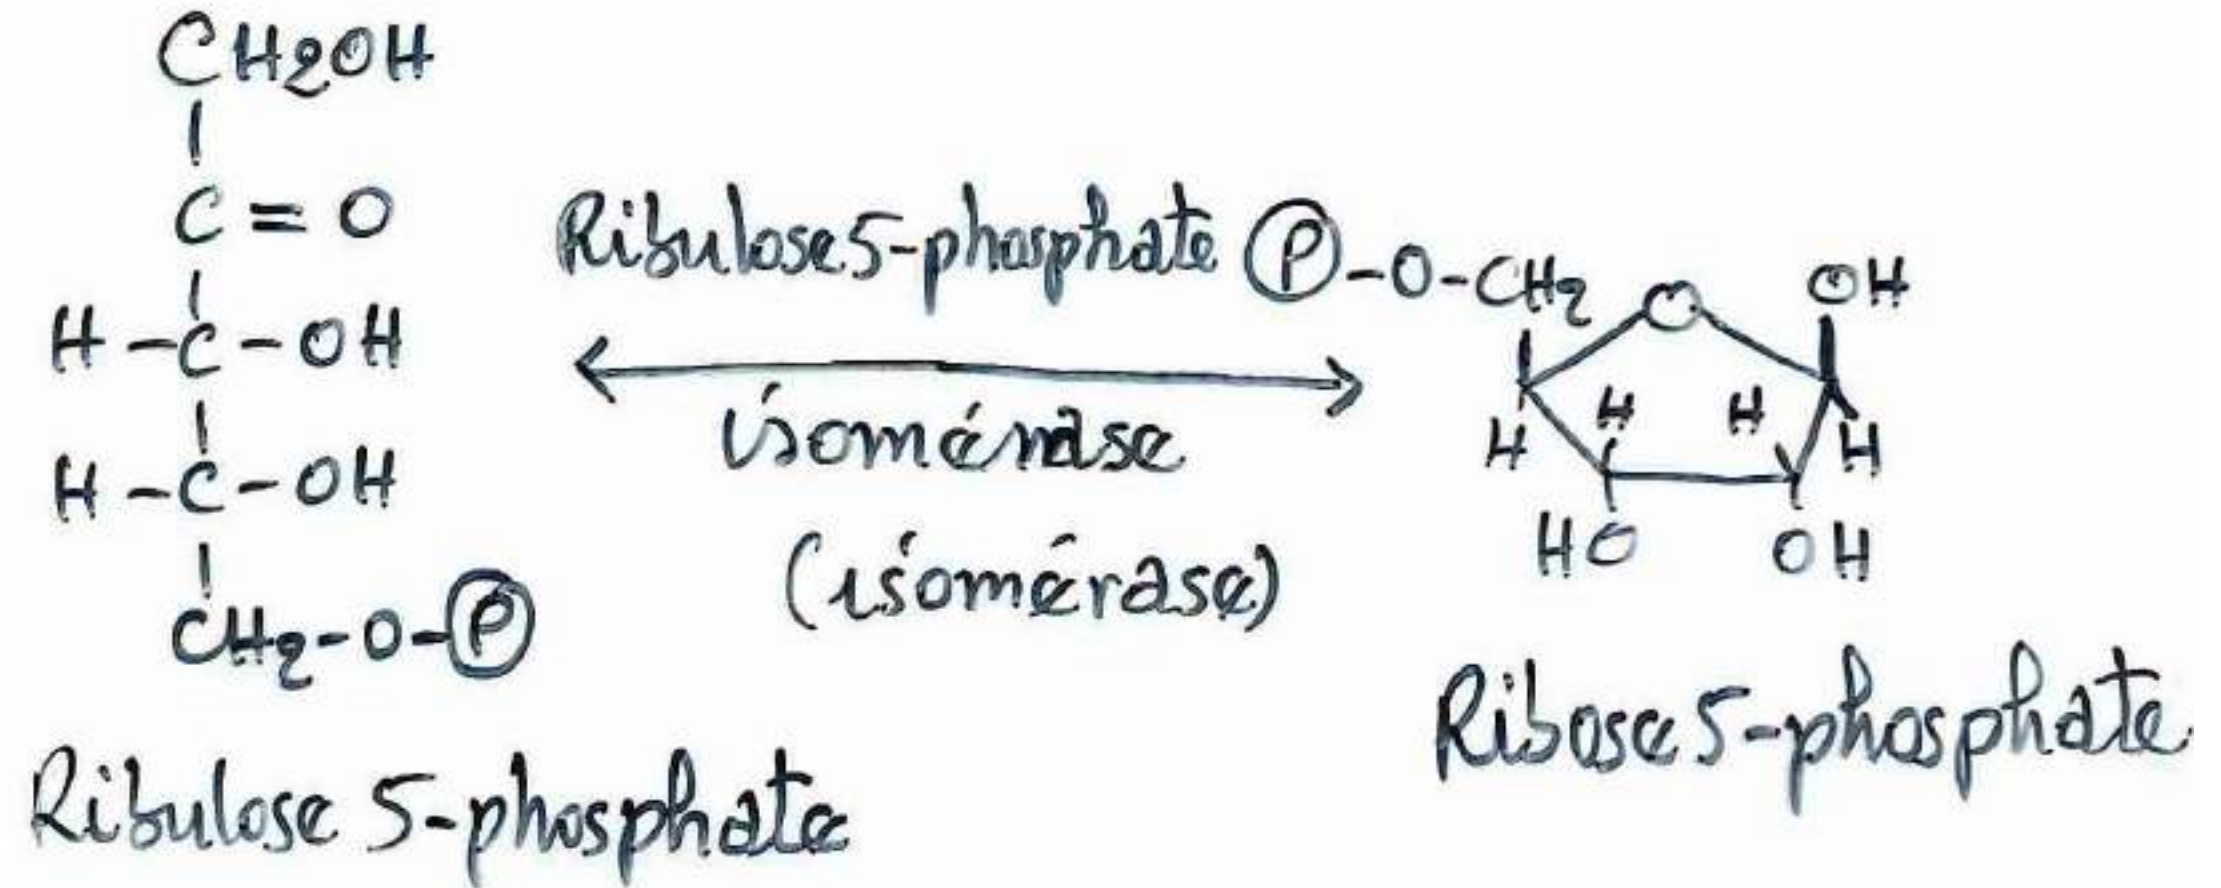 CH2OH
C = O
H - C - OH
H - C - OH
CH2 - O - P
Ribulose 5-phosphate
Ribulose 5-phosphate
isomérase
(isomérase)
P - O - CH2
O
OH
H
H
H
H
HO
OH
Ribose 5-phosphate